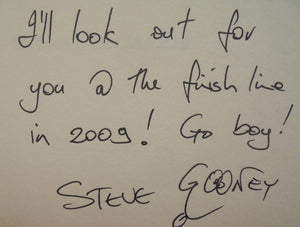 I'll look out for
you @ the finish line
in 2009! Go boy!
STEVE GOONEY